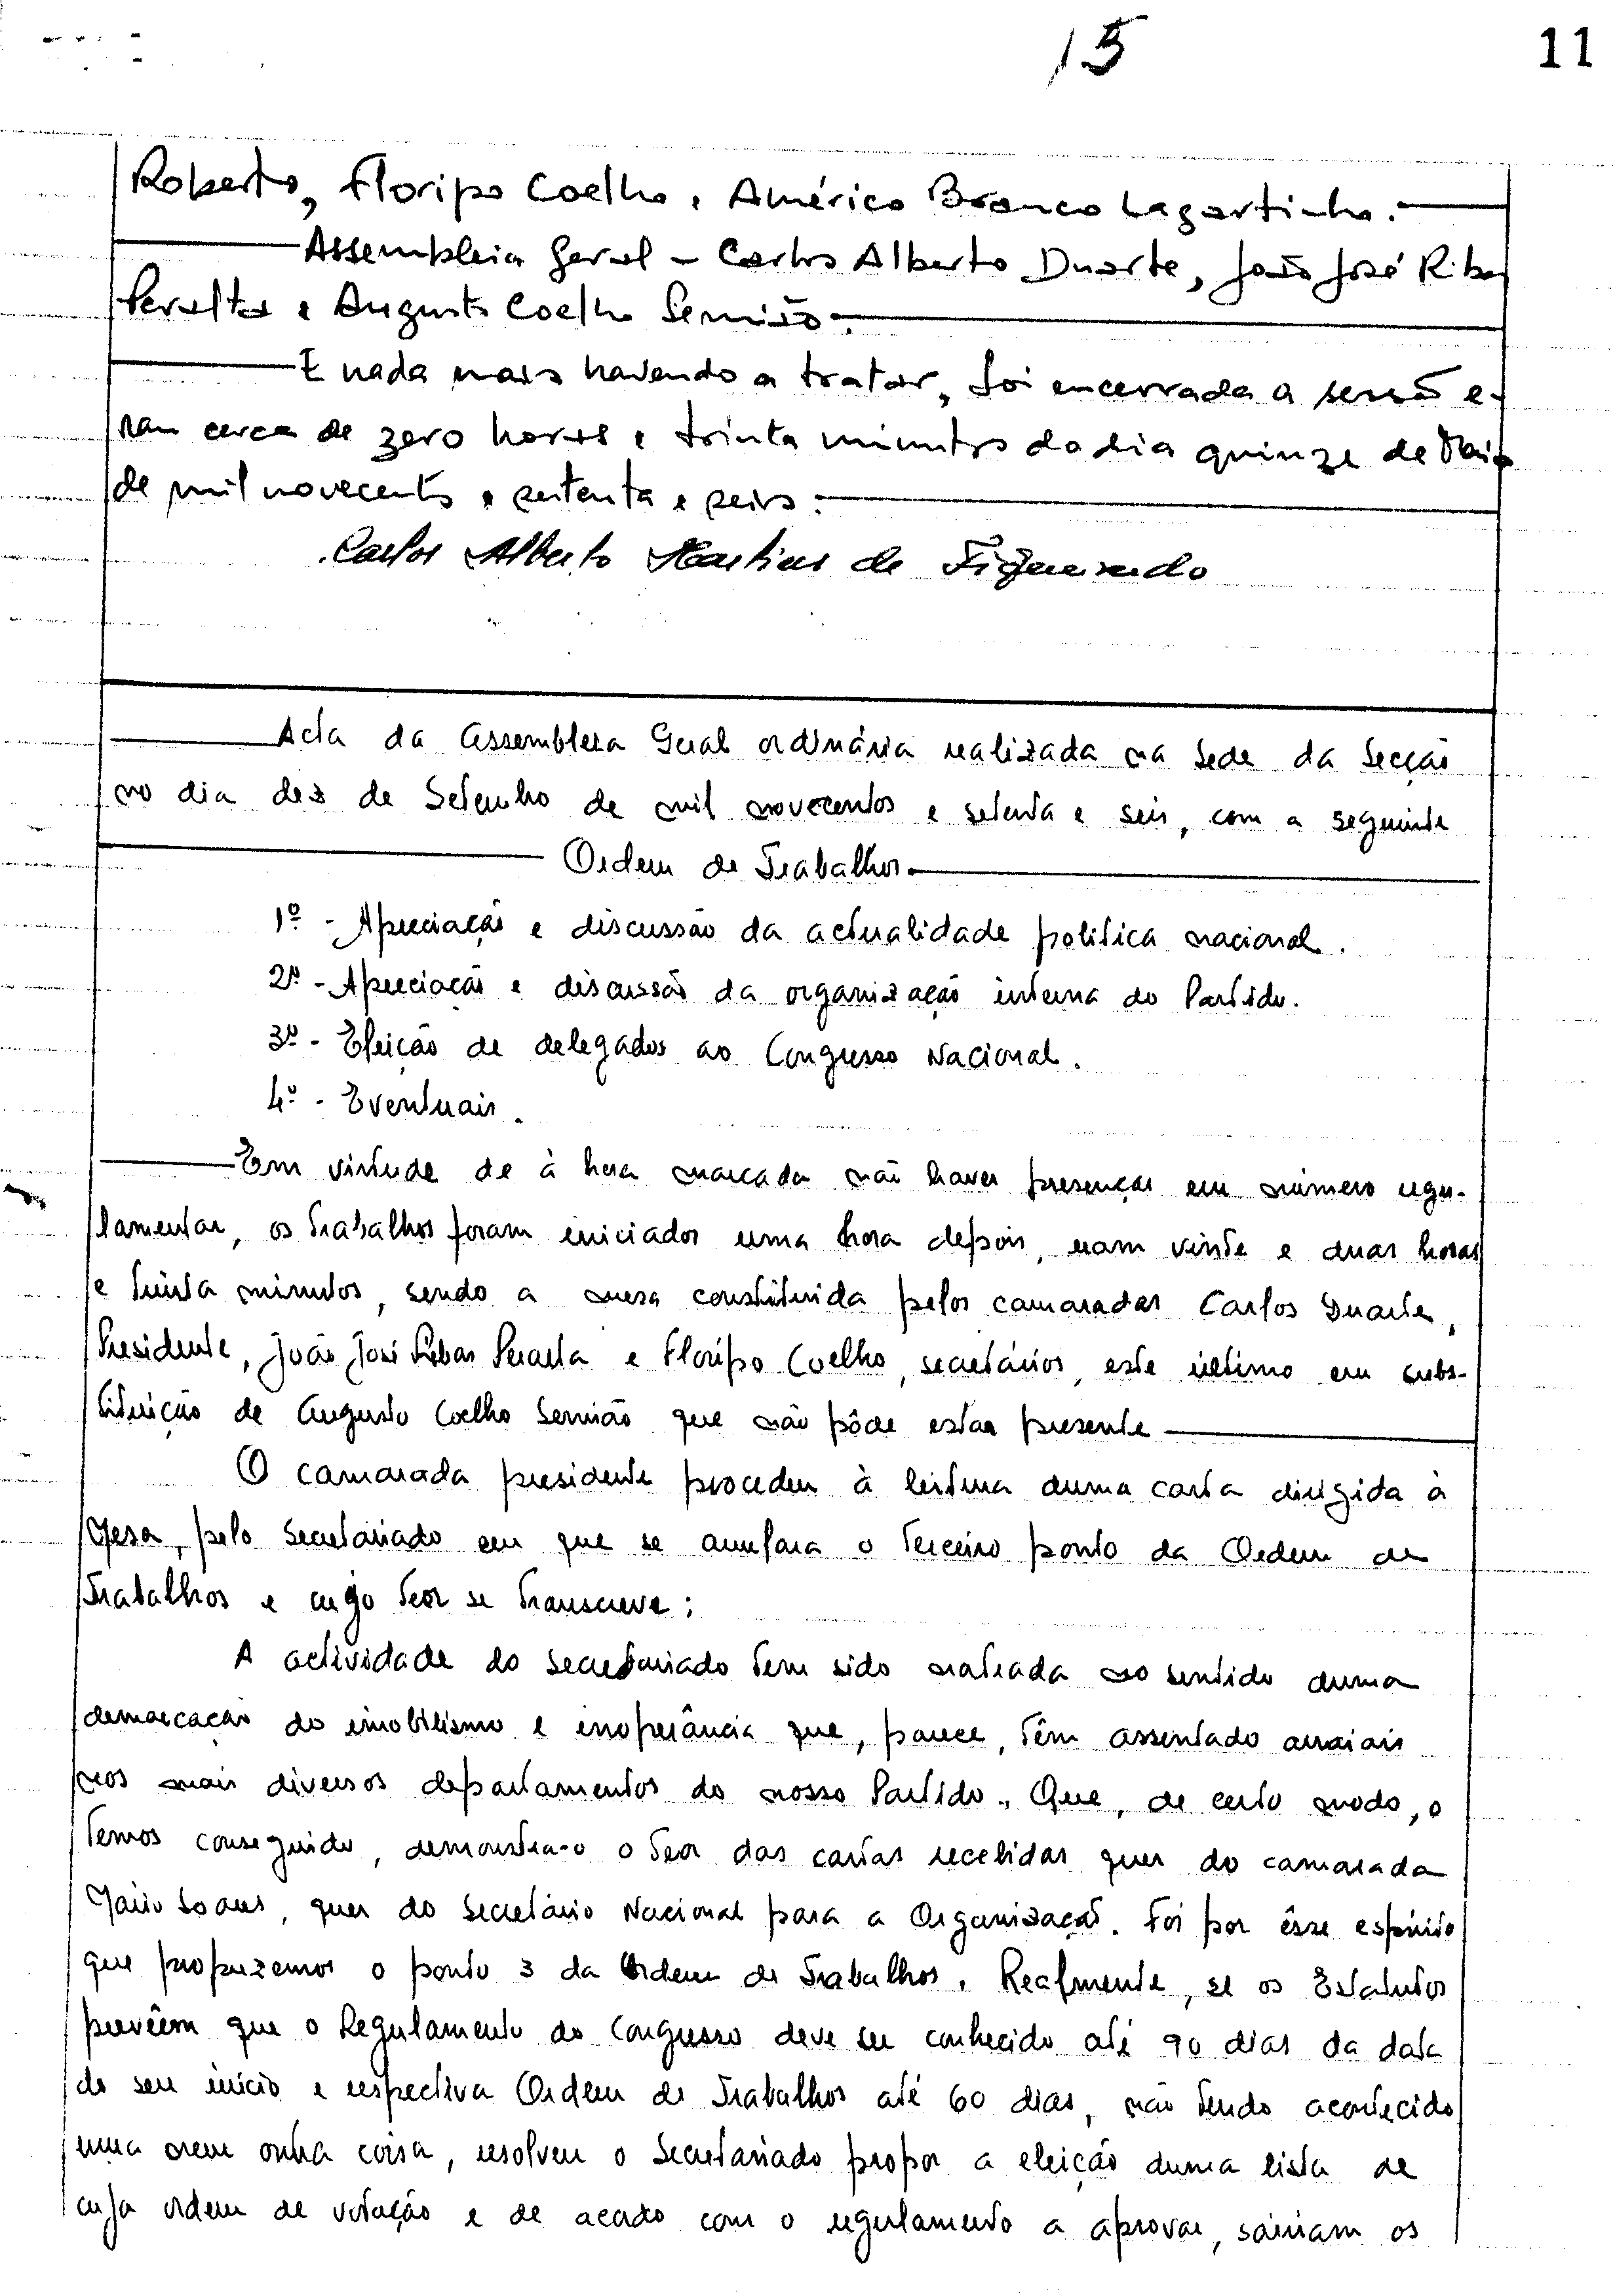 15
11
Roberto, Floripo Coelho, Américo Branco Lagartinho.
Assembleia Geral - Carlos Alberto Duarte, João José Ribas
Peralta e Augusto Coelho Semião.
E nada mais havendo a tratar, foi encerrada a sessão e-
ram cerca de zero horas e trinta minutos do dia quinze de Maio
de mil novecentos e setenta e seis.
Carlos Alberto Martins de Figueiredo
Acta da Assembleia Geral ordinária realizada na sede da Secção
no dia dez de Setembro de mil novecentos e setenta e seis, com a seguinte
Ordem de Trabalhos
1º - Apreciação e discussão da actualidade política nacional.
2º - Apreciação e discussão da organização interna do Partido.
3º - Eleição de delegados ao Congresso Nacional.
4º - Eventuais.
Em virtude de à hora marcada não haver presenças em número regu-
lamentar, os trabalhos foram iniciados uma hora depois, eram vinte e duas horas
e trinta minutos, sendo a mesa constituida pelos camaradas Carlos Duarte,
Presidente, João José Ribas Peralta e Floripo Coelho, secretários, este último em subs-
tituição de Augusto Coelho Semião que não pôde estar presente
O camarada presidente procedeu à leitura duma carta dirigida à
Mesa, pelo Secretariado em que se amplara o terceiro ponto da Ordem de
Trabalhos e cujo teor se transcreve:
A actividade do secretariado tem sido norteada no sentido duma
demarcação do imobilismo e inoperância que, parece, têm assentado arraiais
nos mais diversos departamentos do nosso Partido. Que, de certo modo, o
temos conseguido, demonstra-o o teor das cartas recebidas quer do camarada
Mário Soares, quer do Secretário Nacional para a Organização. Foi por êsse espírito
que propuzemos o ponto 3 da Ordem de Trabalhos. Realmente, se os Estatutos
prevêem que o Regulamento do Congresso deve ser conhecido até 90 dias da data
do seu início e respectiva Ordem de Trabalhos até 60 dias, não tendo acontecido
uma nem outra coisa, resolveu o Secretariado propor a eleição duma lista de
cuja ordem de votação e de acordo com o regulamento a aprovar, sairiam os